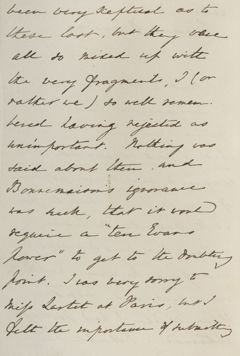 been very skeptical as to
these last, but they were
all so mixed up with
the very fragments, I (or
rather we) so well remem-
bered having rejected as
unimportant. Nothing was
said about them and
Bonnemaison's ignorance
was such, that it would
require a "ten Evans
power" to get to the doubting
point. I was very sorry to
miss Lartet at Paris, but I
felt the importance of submitting